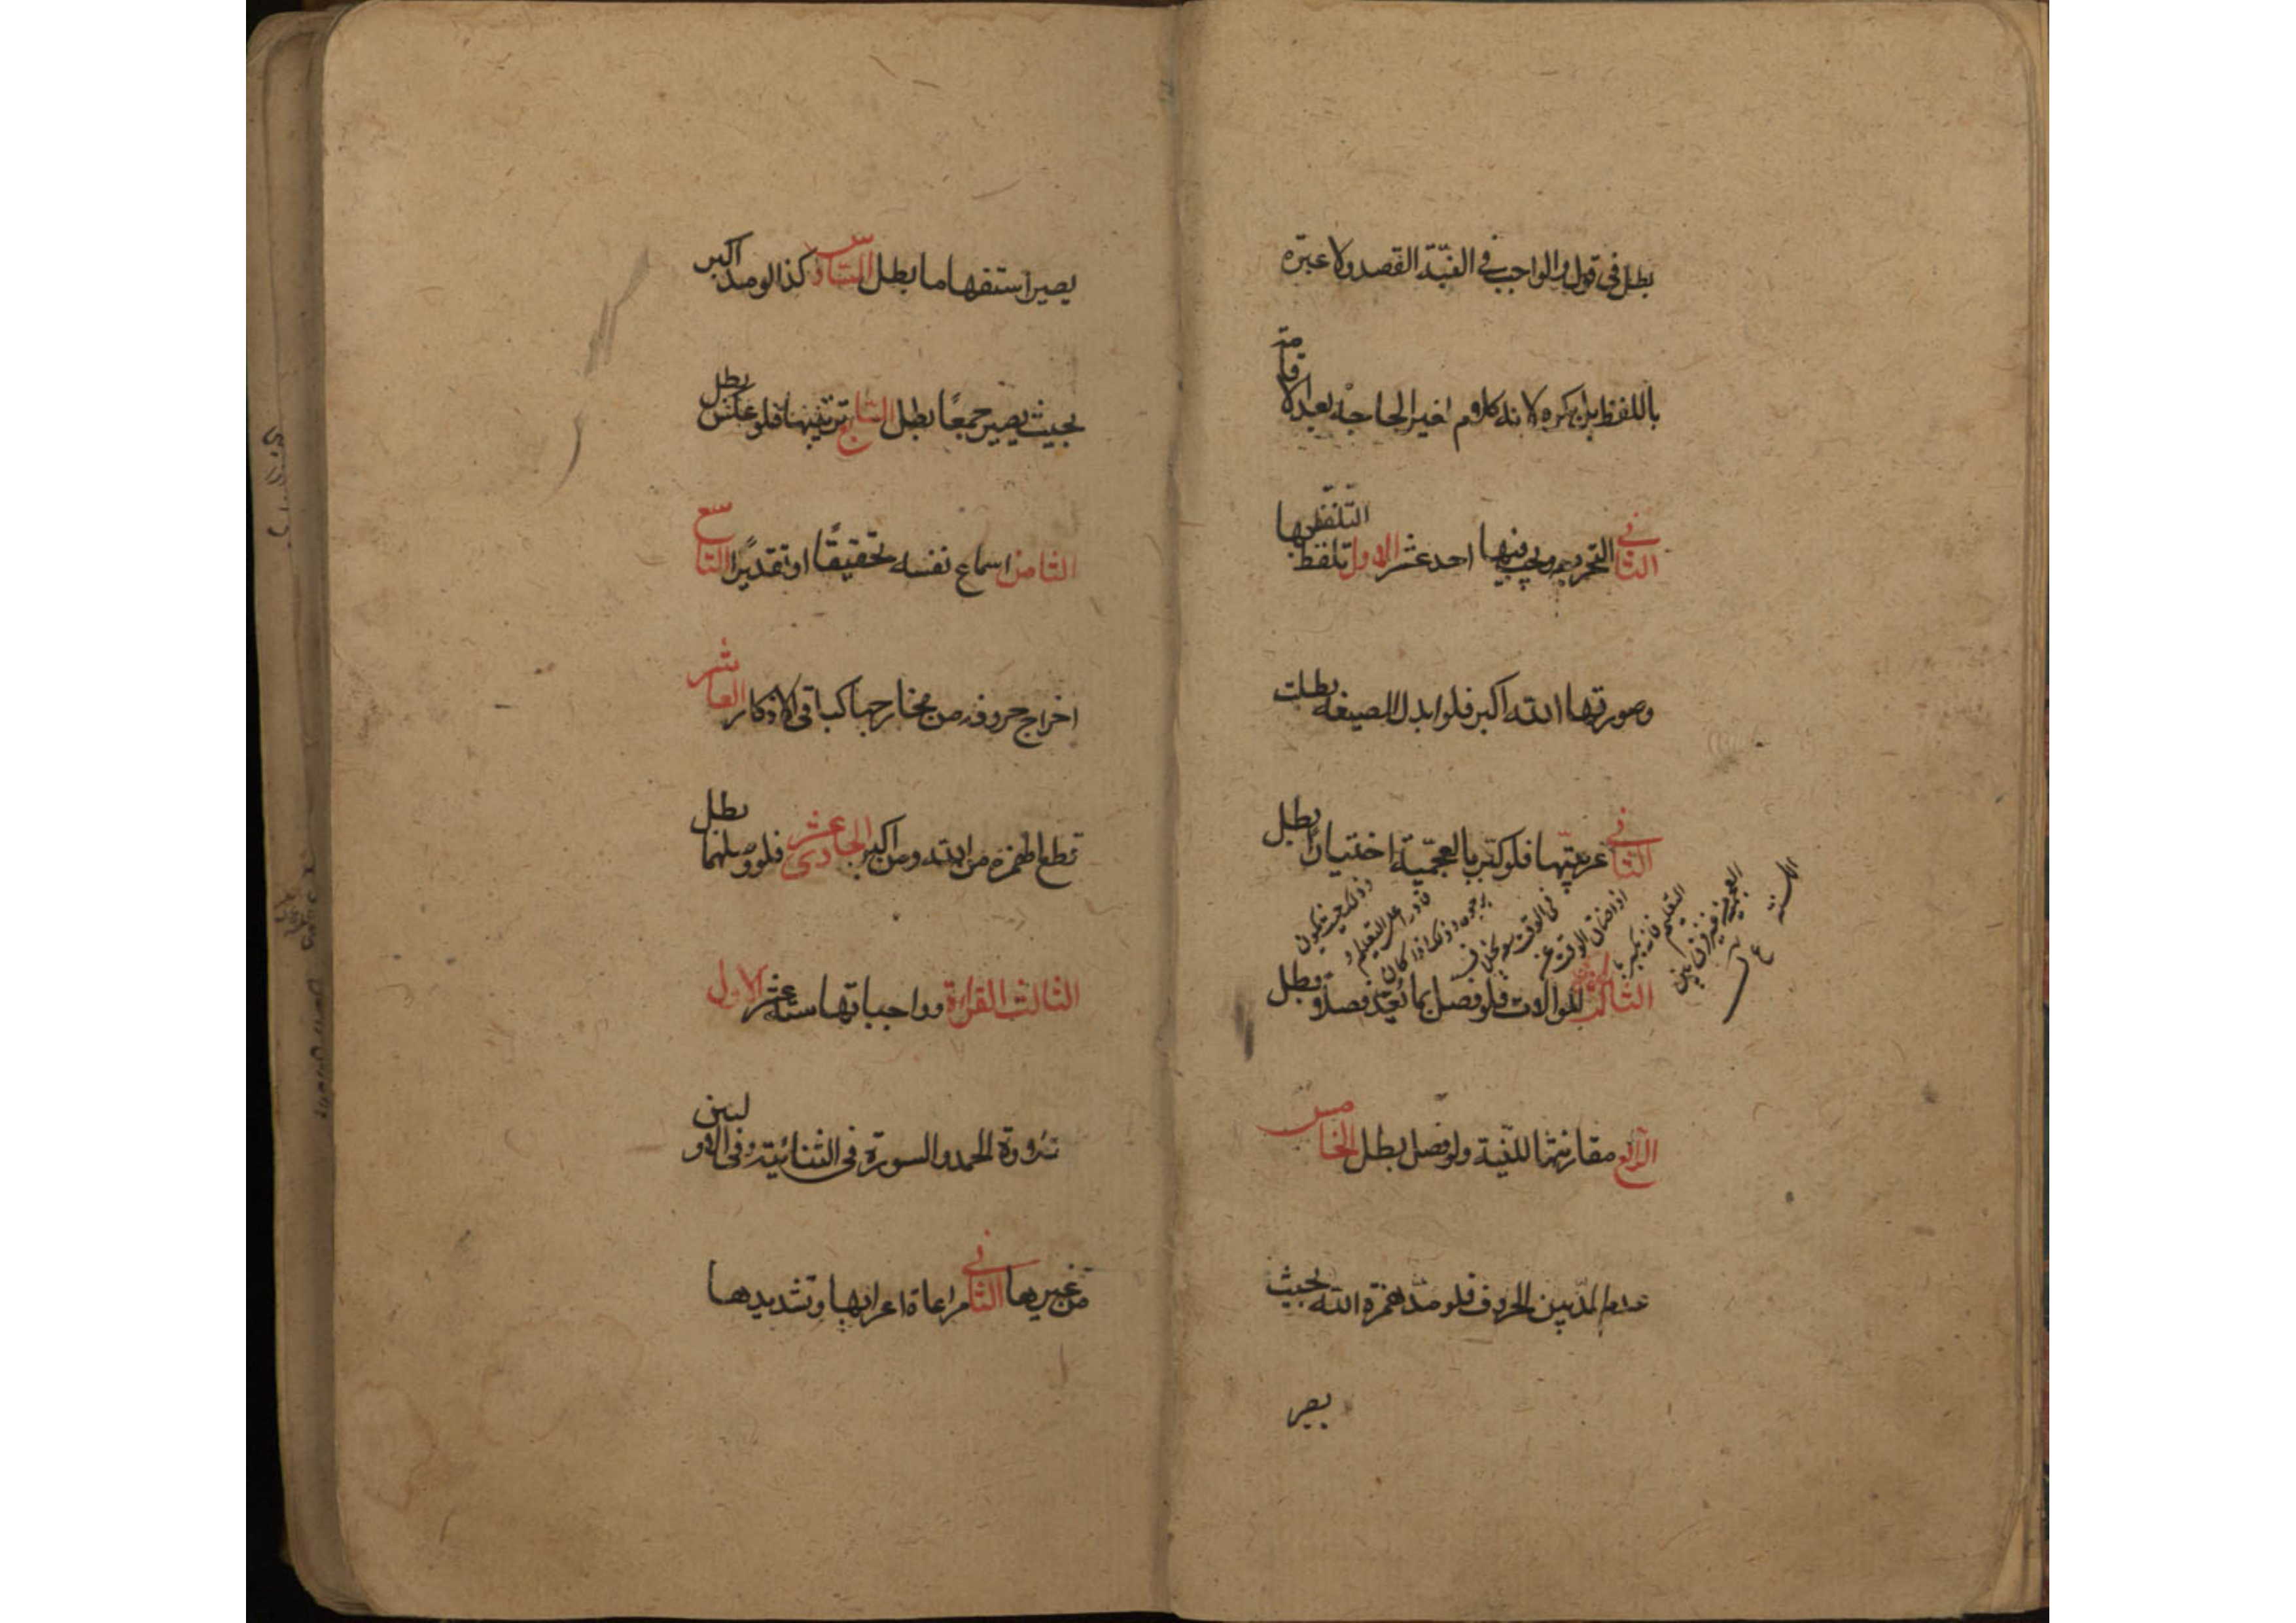 بطل في قول والواجب في النيّة القصد ولا عبرة
باللفظ بل يكره لانه كلام لغير الحاجة بعد الاقامة
الثاني التحريمه ويجب فيها احد عشر الاول تلفظ التلفظ بها
وصورتها الله اكبر فلو ابدل الصيغه بطلت
الثاني عربيّتها فلو كبّر بالعجميّة اختيارًا بطل
وذلك بحيث يكون
قادرا على التعليم و
يرجوه وذلك اذا كان
في الوقت سعة بخلاف
اذا ضاق الوقت عن
التعليم فانه يكبر با
لعجميّة من غير فرق بين
الالسنة
الثالث الموالات فلو فصل بما يُعدّ فصلًا بطل
الرابع مقارنتها للنيّة ولو فصل بطل الخامس
عدم المدّ بين الحروف فلو مدّ همزة الله بحيث
يصير
يصير استفهاما بطل السادس كذا لو مد اكبر
بحيث يصير جمعًا بطل السابع ترتيبها فلو عكس بطل
الثامن اسماع نفسه تحقيقًا او تقديرًا التاسع
اخراج حروفه من مخارجها كباقي الاذكار العاشر
قطع الهمزة من الله ومن اكبر الحادى عشر فلو وصلهما بطل
الثالث القراءة وواجباتها ستة عشر الاول
تلاوة الحمد والسورة في الثنائية وفي الاوليين
من غيرها الثاني مراعاة اعرابها وتشديدها